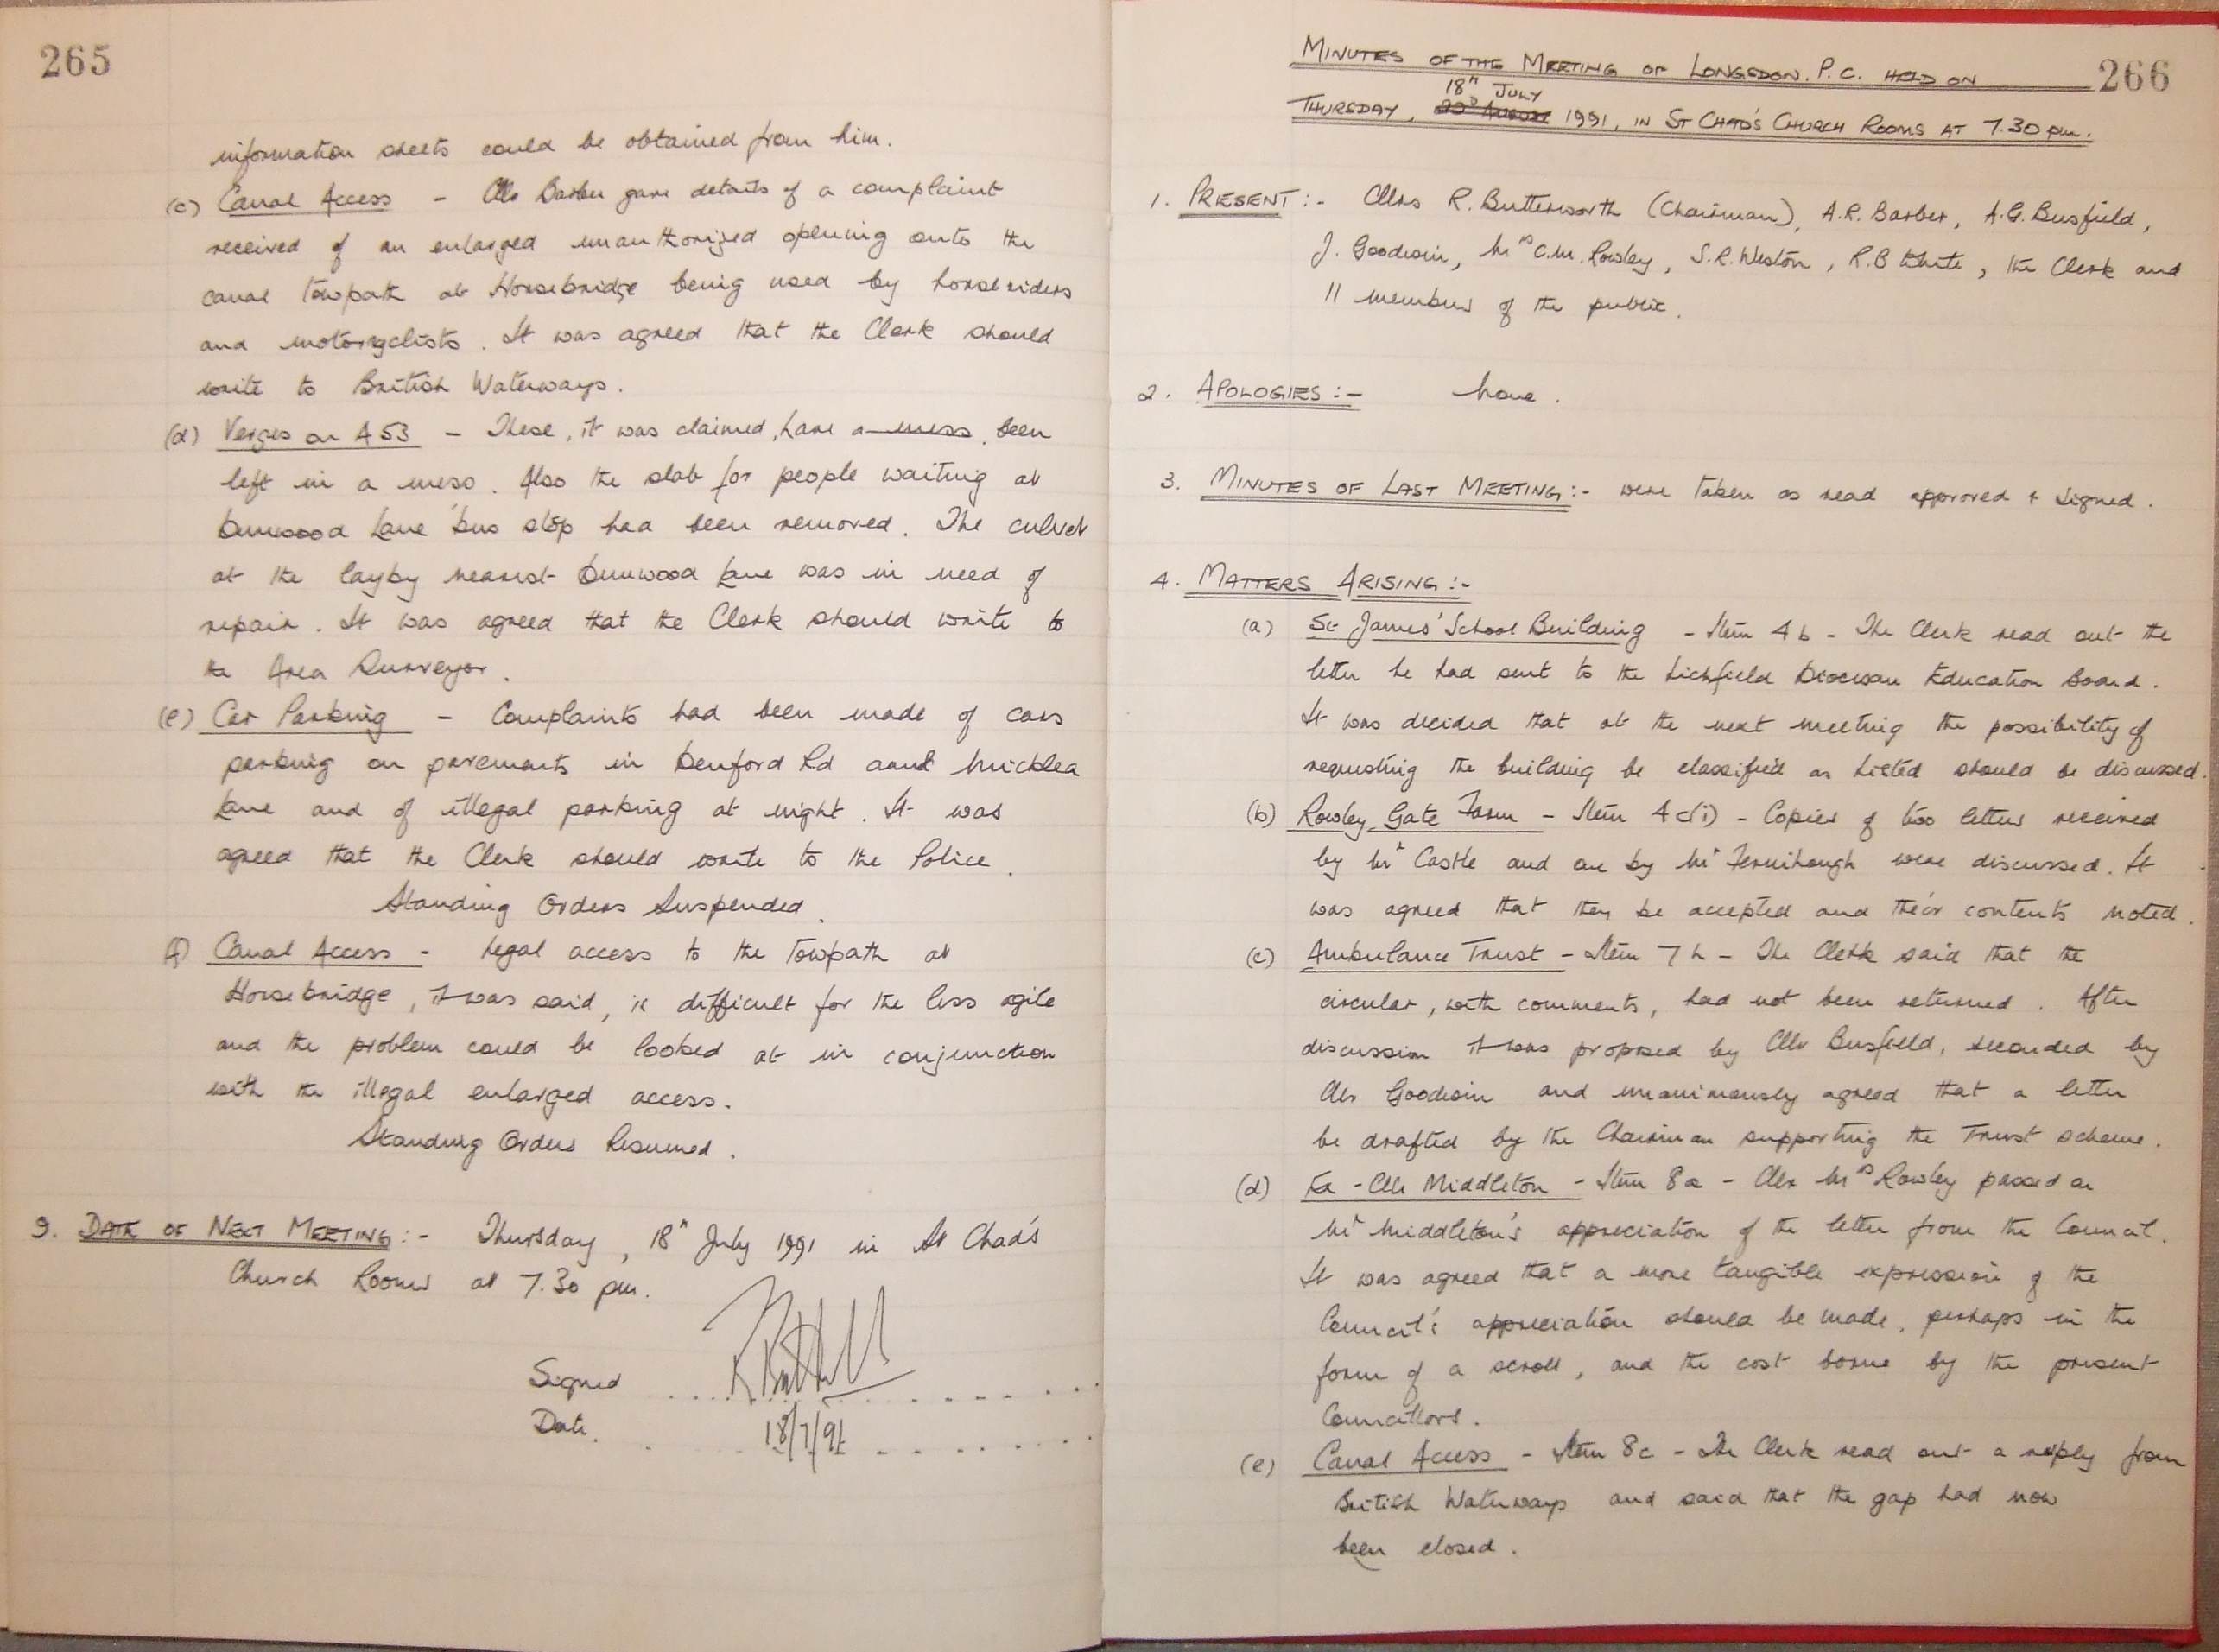 265
information sheets could be obtained from him.
(c) Canal Access - Cllr Barber gave details of a complaint
received of an enlarged unauthorized opening onto the
canal towpath at Horsebridge being used by horseriders
and motorcyclists. It was agreed that the Clerk should
write to British Waterways.
(d) Verges on A53 - These, it was claimed, have a mess, been
left in a mess. Also the slab for people waiting at
Dunwood Lane 'bus stop had been removed. The culvert
at the layby nearest Dunwood Lane was in need of
repair. It was agreed that the Clerk should write to
the Area Surveyor.
(e) Car Parking - Complaints had been made of cars
parking on pavements in Denford Rd and Micklea
Lane and of illegal parking at night. It was
agreed that the Clerk should write to the Police.
Standing Orders Suspended.
(f) Canal Access - Legal access to the towpath at
Horsebridge, it was said, is difficult for the less agile
and the problem could be looked at in conjunction
with the illegal enlarged access.
Standing Orders Resumed.
9. DATE OF NEXT MEETING:- Thursday, 18th July 1991 in St Chad's
Church Rooms at 7.30 pm.
Signed
Date. 18/7/91
266
MINUTES OF THE MEETING OF LONGSDON. P.C. HELD ON
18th JULY
THURSDAY, 1991, IN ST CHAD'S CHURCH ROOMS AT 7.30 pm.
1. PRESENT:- Cllrs R. Butterworth (Chairman), A.R. Barber, A.G. Busfield,
J. Goodwin, Mrs C.M. Rowley, S.R. Weston, R.B White, the Clerk and
11 members of the public.
2. APOLOGIES:- None.
3. MINUTES OF LAST MEETING:- were taken as read approved + signed.
4. MATTERS ARISING:-
(a) St James' School Building - Item 4b - The Clerk read out the
letter he had sent to the Lichfield Diocesan Education Board.
It was decided that at the next meeting the possibility of
requesting the building be classified as Listed should be discussed.
(b) Rowley Gate Farm - Item 4c(i) - Copies of two letters received
by Mr Castle and one by Mr Fernihough were discussed. It
was agreed that they be accepted and their contents noted.
(c) Ambulance Trust - Item 7h - The Clerk said that the
circular, with comments, had not been returned. After
discussion it was proposed by Cllr Busfield, seconded by
Cllr Goodwin and unanimously agreed that a letter
be drafted by the Chairman supporting the Trust scheme.
(d) Ex-Cllr Middleton - Item 8a - Cllr Mrs Rowley passed on
Mr Middleton's appreciation of the letter from the Council.
It was agreed that a more tangible expression of the
Council's appreciation should be made, perhaps in the
form of a scroll, and the cost borne by the present
Councillors.
(e) Canal Access - Item 8c - The Clerk read out a reply from
British Waterways and said that the gap had now
been closed.